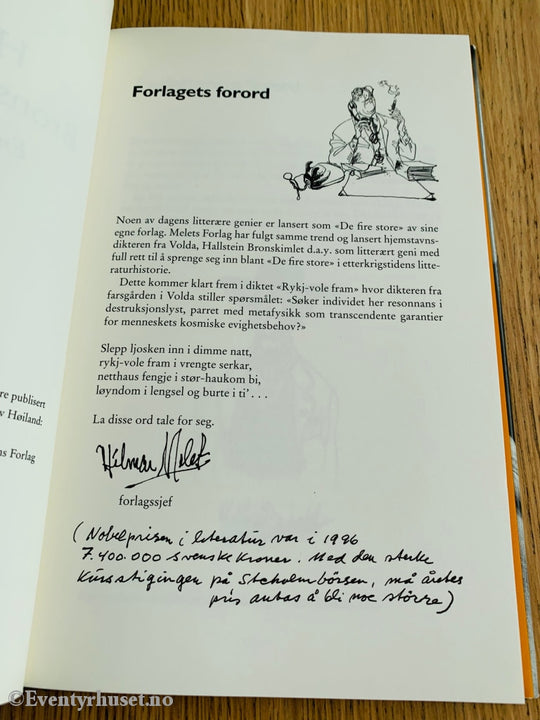 H
Brons
re publisert
v Høiland:
ns Forlag
Forlagets forord
Noen av dagens litterære genier er lansert som «De fire store» av sine
egne forlag. Melets Forlag har fulgt samme trend og lansert hjemstavns-
dikteren fra Volda, Hallstein Bronskimlet d.a.y. som litterært geni med
full rett til å sprenge seg inn blant «De fire store» i etterkrigstidens litte-
raturhistorie.
Dette kommer klart frem i diktet «Rykj-vole fram» hvor dikteren fra
farsgården i Volda stiller spørsmålet: «Søker individet her resonnans i
destruksjonslyst, parret med metafysikk som transcendente garantier
for menneskets kosmiske evighetsbehov?»
Slepp ljosken inn i dimme natt,
rykj-vole fram i vrengte serkar,
netthaus fengje i stør-haukom bi,
løyndom i lengsel og burte i ti' . . .
La disse ord tale for seg.
Hilmar Melet
forlagssjef
(Nobelprisen i literatur var i 1996
7.400.000 svenske kroner. Med den sterke
kursstigingen på Stcholmbörsen, må årets
pris antas å bli noe större)
©Eventyrhuset.no